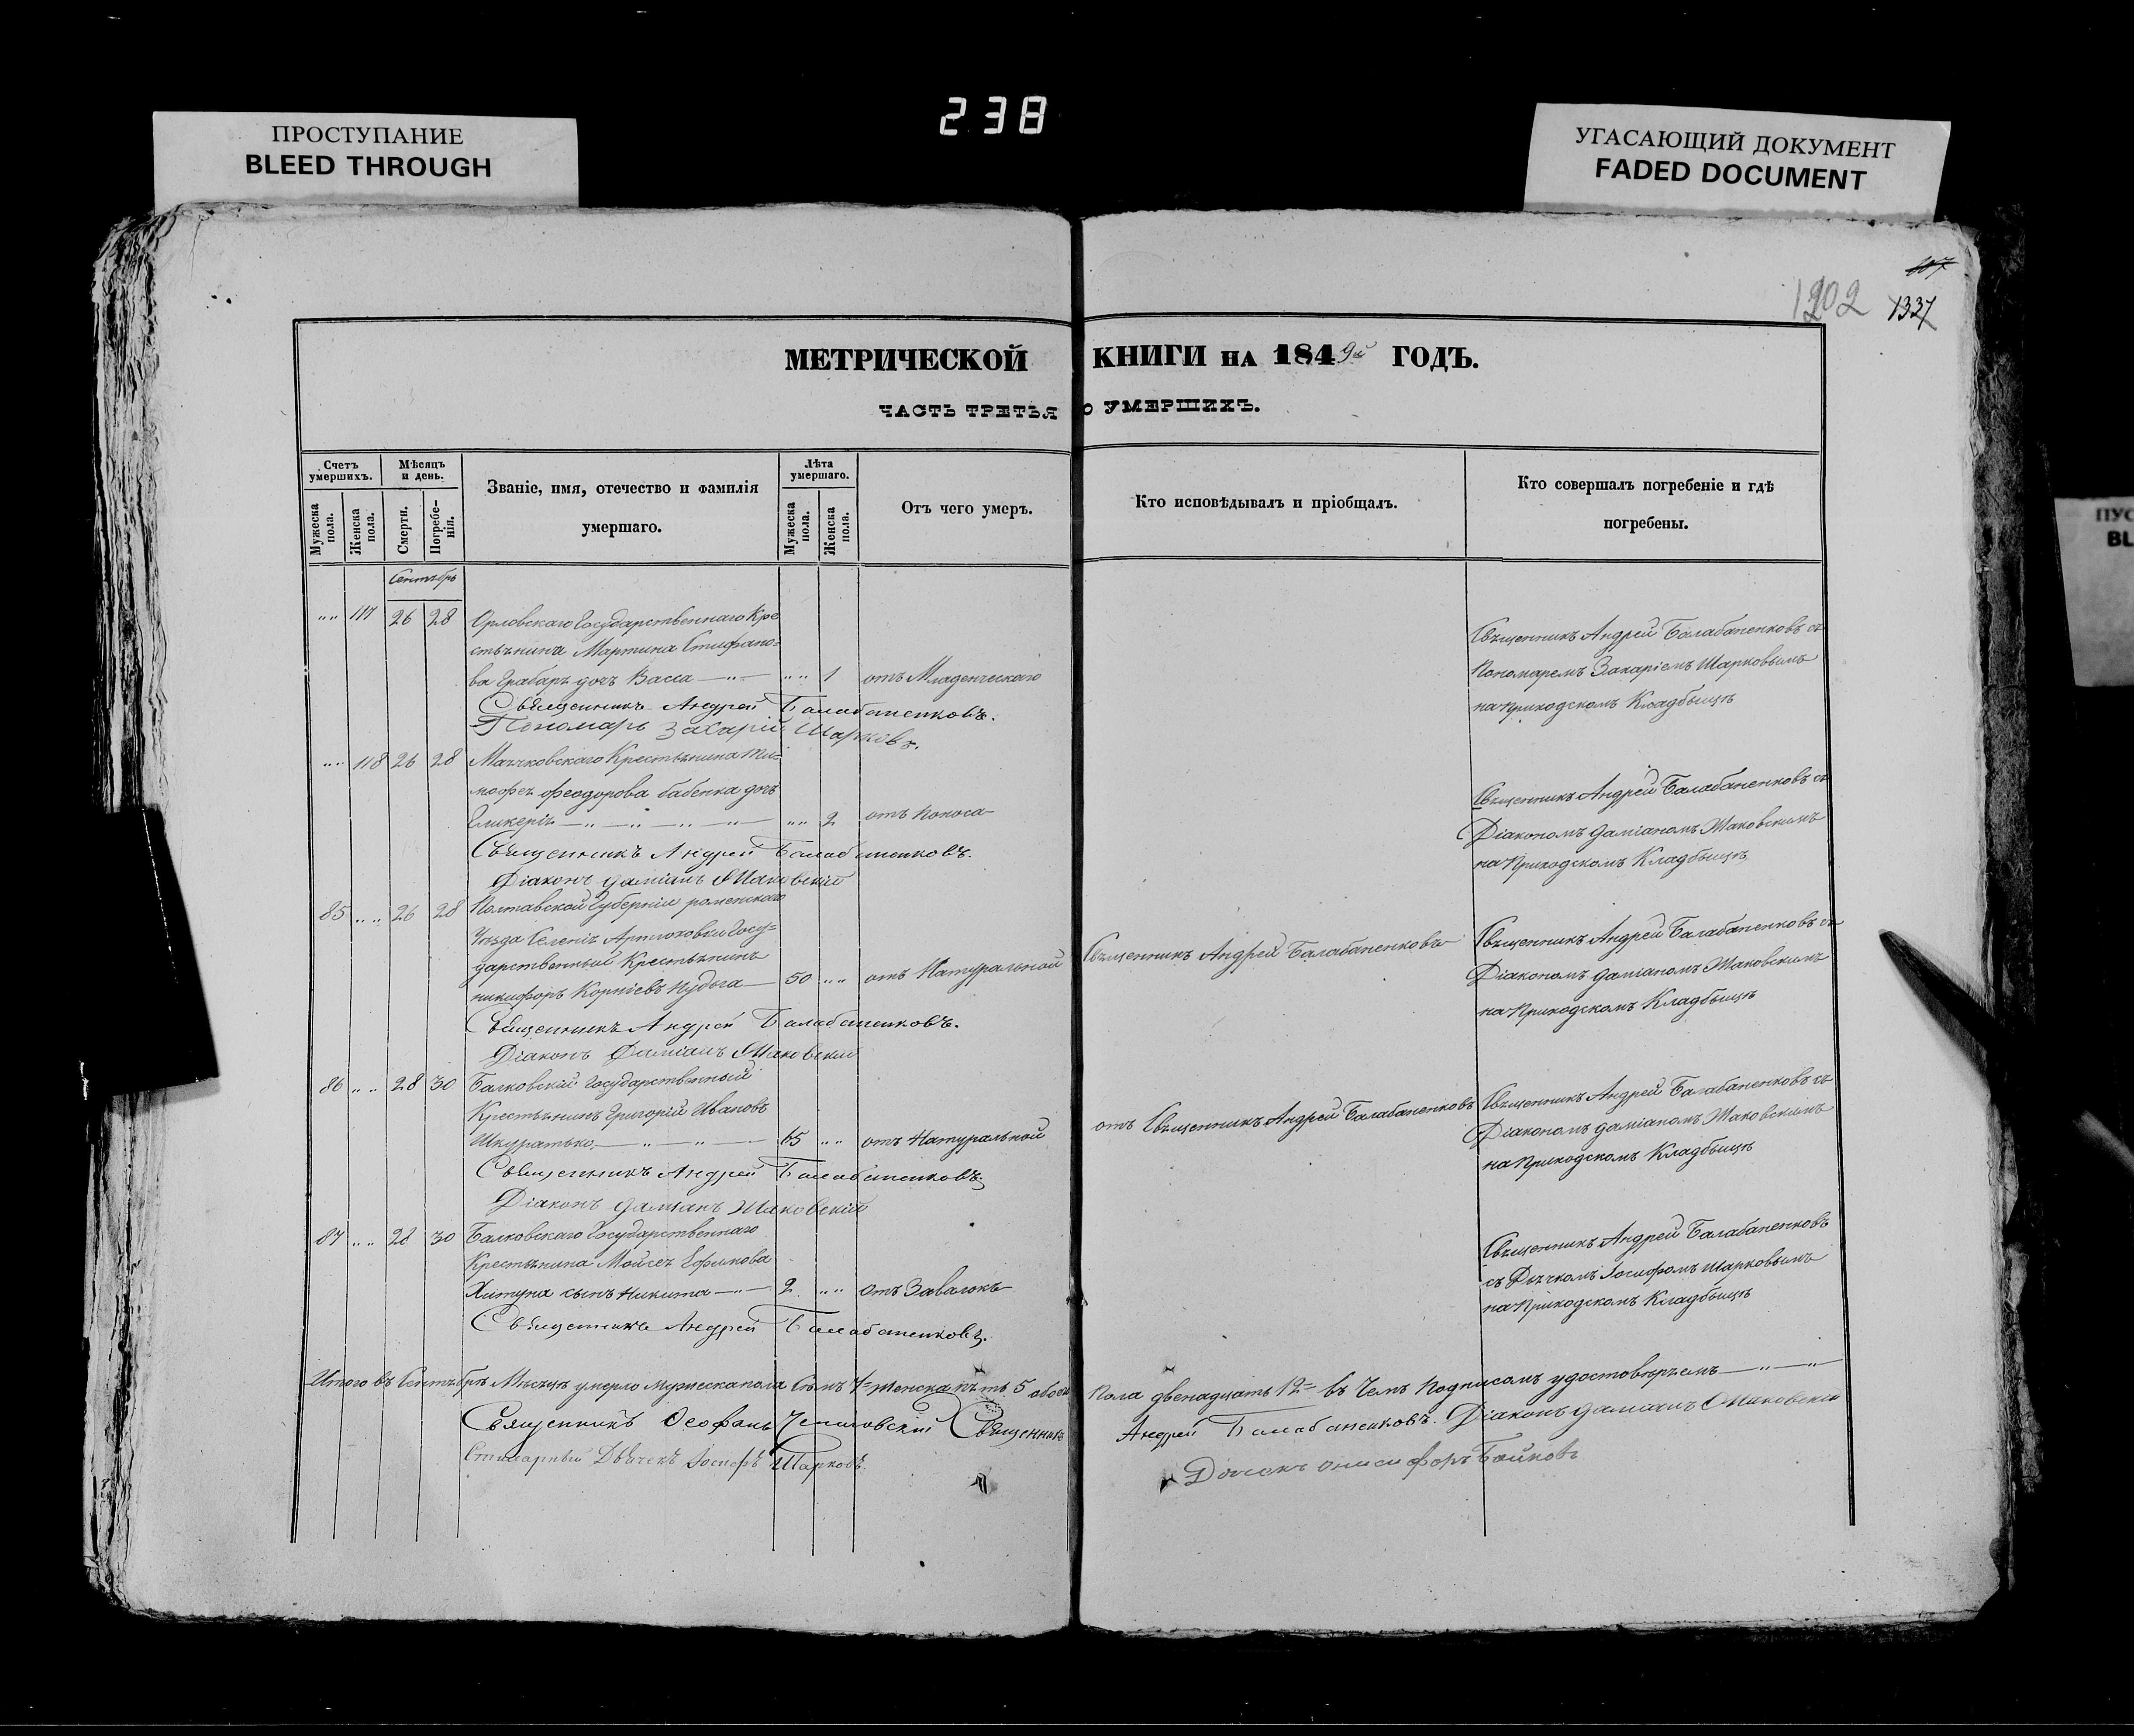 238
ПРОСТУПАНИЕ
BLEED THROUGH
УГАСАЮЩИЙ ДОКУМЕНТ
FADED DOCUMENT
ПУС
BL
1202 1337
МЕТРИЧЕСКОЙ КНИГИ НА 1849й ГОДЪ.
ЧАСТЬ ТРЕТЬЯ О УМЕРШИХЪ.
Счетъ умершихъ.
Мужеска пола.
Женска пола.
Мѣсяцъ и день.
Смерти.
Погребе-нія.
Званіе, имя, отечество и фамилія
умершаго.
Лѣта умершаго.
Мужеска пола.
Женска пола.
Отъ чего умеръ.
Кто исповѣдывалъ и пріобщалъ.
Кто совершалъ погребеніе и гдѣ
погребены.
Сентябрь
117 26 28 Орловскаго Государственнаго Кре
стьянина Мартина Стифано-
ва Грабаря дочь Васса 1 отъ Младенческаго
Священникъ Андрей Балабаненковъ съ
Пономаремъ Захаріемъ Шарковымъ
на приходскомъ Кладбищѣ
Священникъ Андрей Балабаненковъ.
Пономарь Захарій Шарковъ.
118 26 28 Мачковскаго Крестьянина Ти-
мофея Феодорова бабенка дочь
Гликерія 2 отъ поноса
Священникъ Андрей Балабаненковъ съ
Діакономъ Даміаномъ Маковскимъ
на приходскомъ Кладбищѣ
Священникъ Андрей Балабаненковъ.
Діаконъ Даміанъ Маковскій
85 26 28 Полтавской Губерніи роменскаго
Уѣзда Селенія Артюховки Госу-
дарственный Крестьянинъ
никифоръ Корніевъ 50 отъ Натуральной
Священникъ Андрей Балабаненковъ
Священникъ Андрей Балабаненковъ съ
Діакономъ Даміаномъ Маковскимъ
на приходскомъ Кладбищѣ
Священникъ Андрей Балабаненковъ.
Діаконъ Даміанъ Маковскій
86 28 30 Балковскій Государственный
Крестьянинъ Григорій Ивановъ
Шкуратько 65 отъ Натуральной
отъ Священникъ Андрей Балабаненковъ
Священникъ Андрей Балабаненковъ съ
Діакономъ Даміаномъ Маковскимъ
на приходскомъ Кладбищѣ
Священникъ Андрей Балабаненковъ.
Діаконъ Даміанъ Маковскій
87 28 30 Балковскаго Государственнаго
Крестьянина Мойсея Ефимова
Хитуна сынъ Никита 2 отъ Завалокъ
Священникъ Андрей Балабаненковъ
съ Дьячкомъ Іосифомъ Шарковымъ
на приходскомъ Кладбищѣ
Священникъ Андрей Балабаненковъ.
Итого въ Сентябрѣ Мѣсяцѣ умерло мужеска пола семь 7 женска пять 5 обоего пола двенадцать 12 въ чемъ подписомъ удостовѣряемъ
Священникъ Ѳеофанъ Священникъ Андрей Балабаненковъ. Діаконъ Даміанъ Маковскій
Дьячекъ Іосифъ Шарковъ. Дьячекъ Онисифоръ Бойковъ